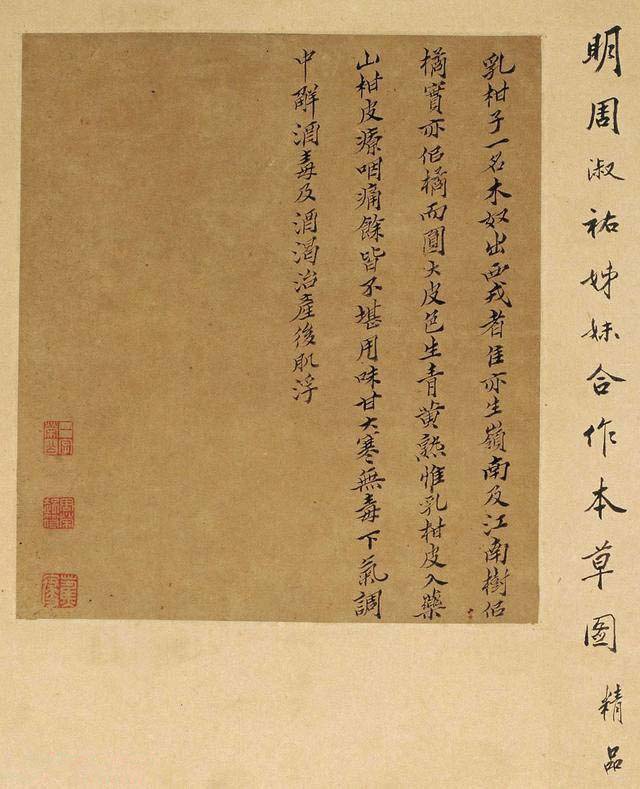 明周淑祐姊妹合作本草圖 精品
乳柑子一名木奴出西戎者佳亦生嶺南及江南樹侣
橘實亦侣橘而圓大皮色生青黄熟惟乳柑皮入藥
山柑皮療咽痛餘皆不堪用味甘大寒無毒下氣調
中解酒毒及酒渴治產後肌浮